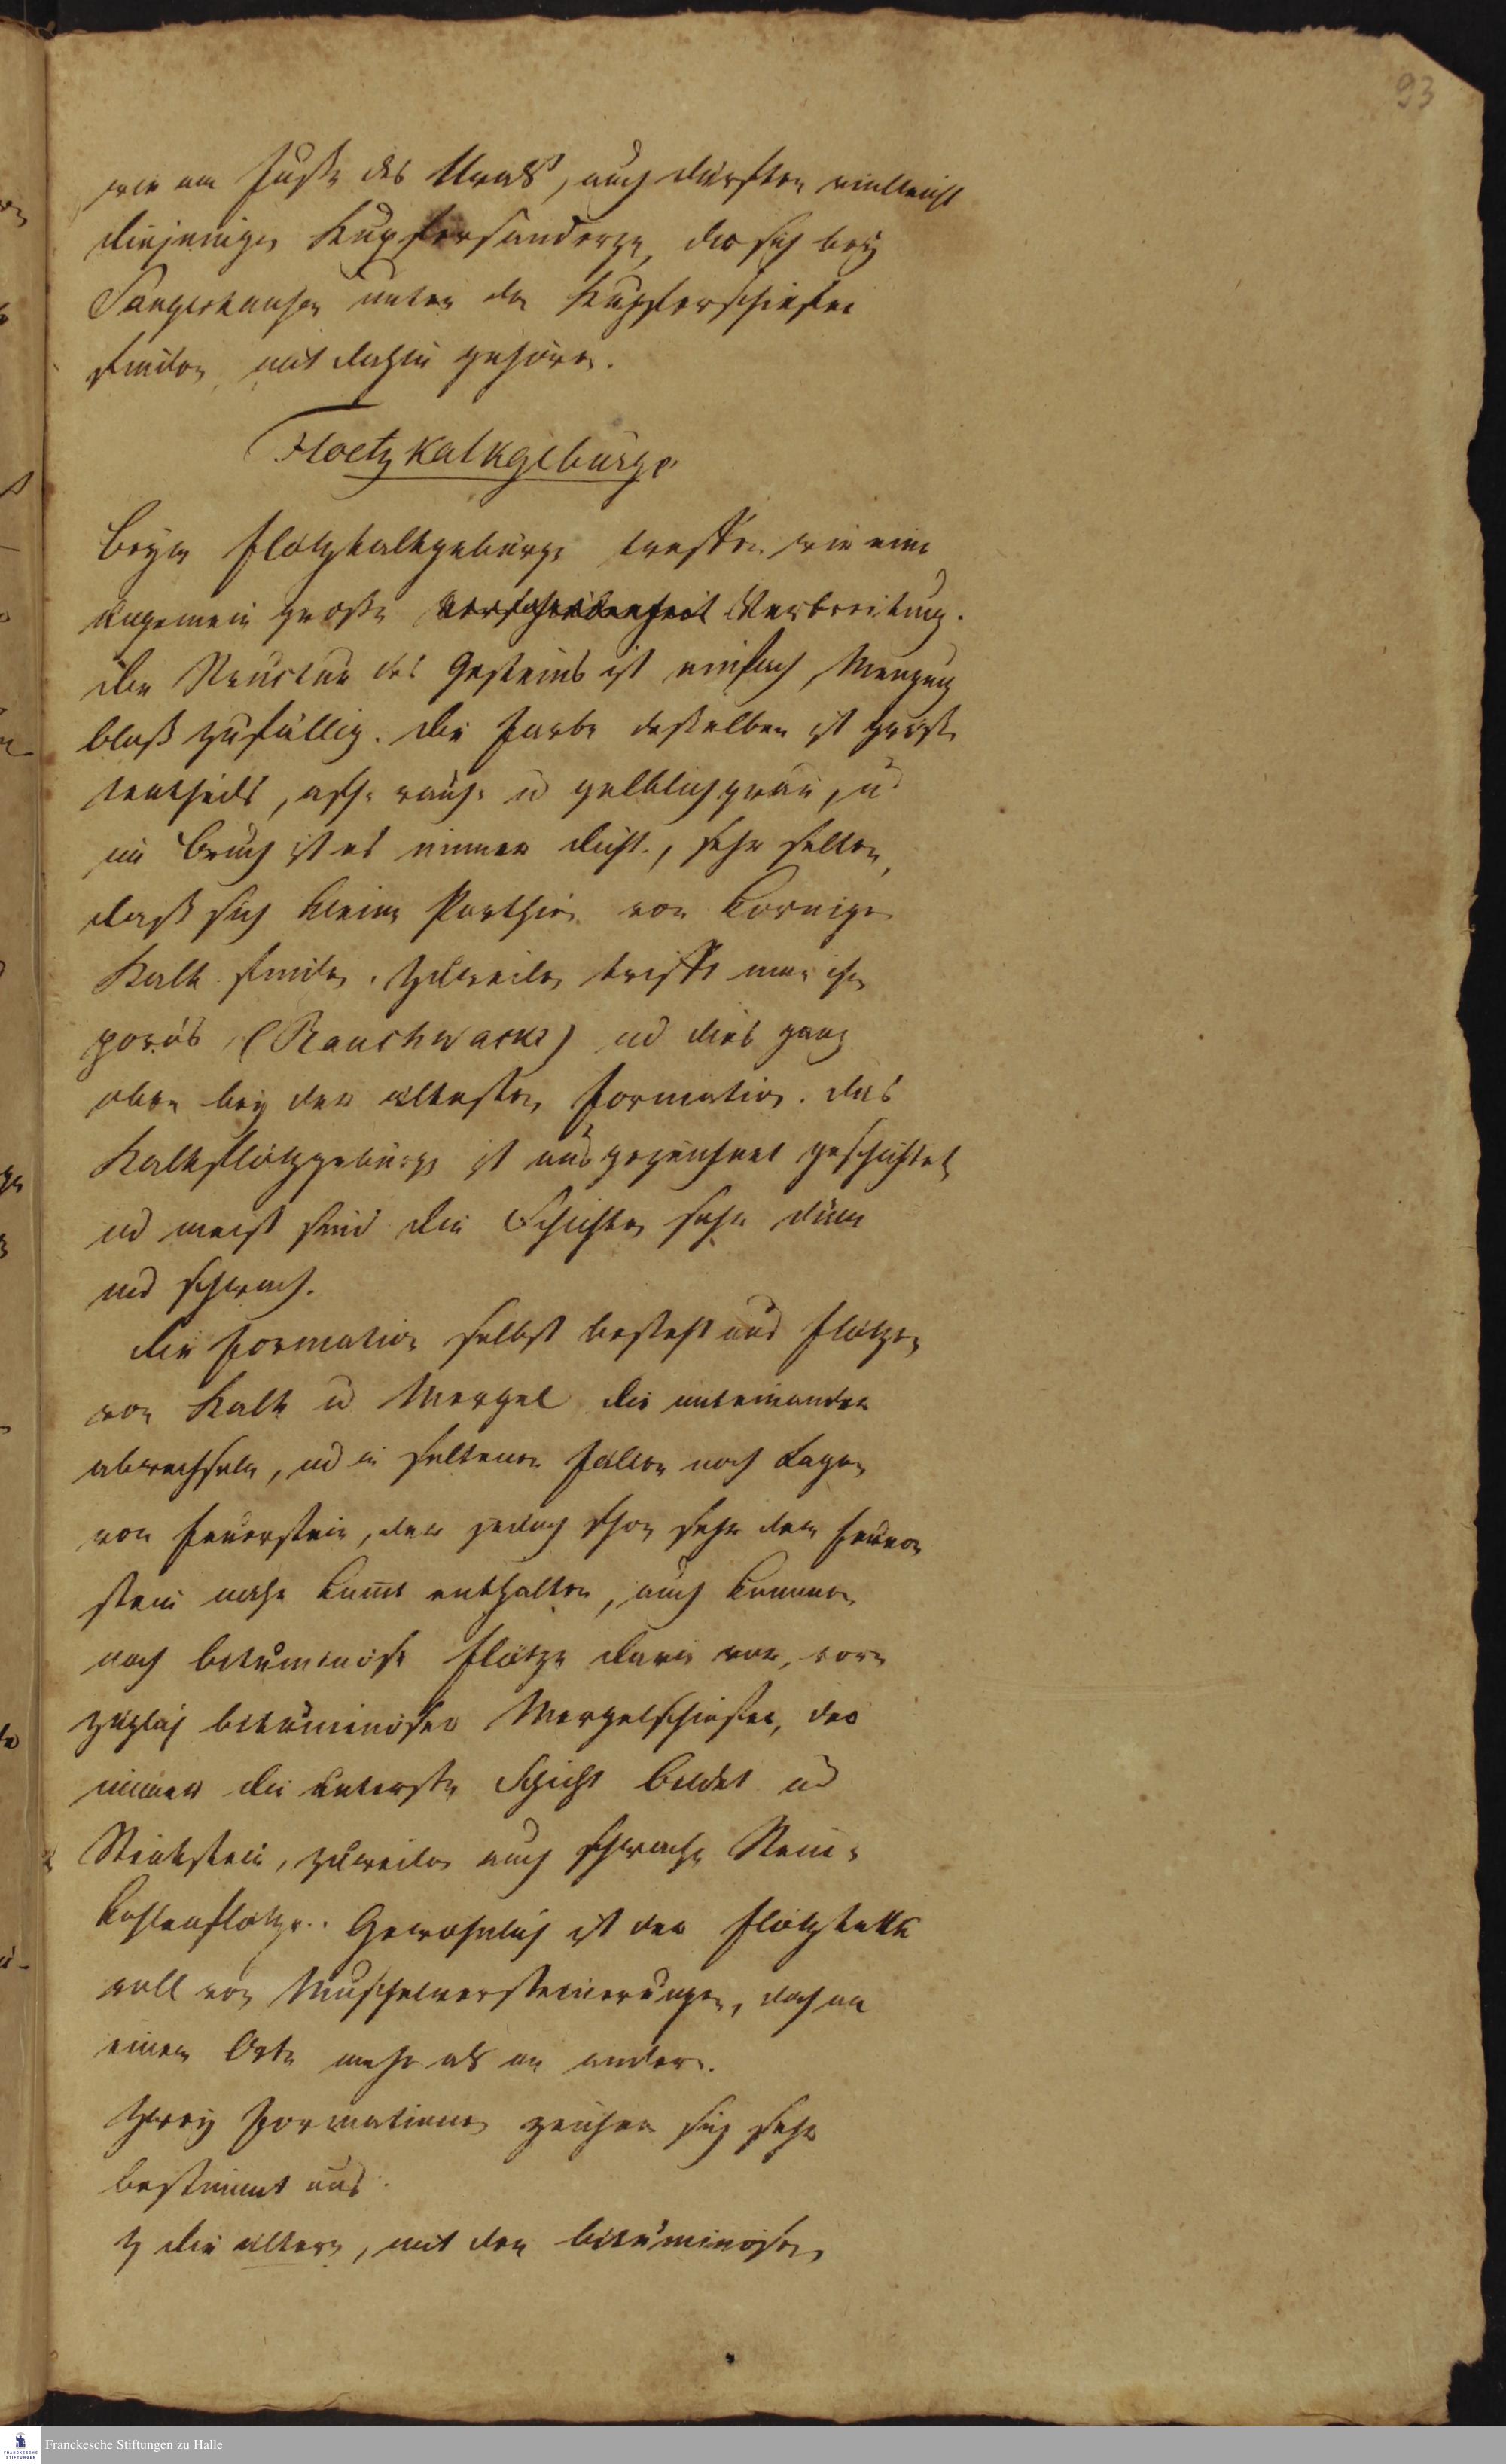 93
wie am Fuße des Urals, auch dürften vielleicht
diejenigen Kupfersanderze, die sich bey
Sangerhausen unter den Kupferschiefer
finden mit dahin gehören.
Floetzkalkgebürge
Beym Flötzkalkgebürge treffen wir eine
ungemein große Verschiedenheit Verbreitung.
Die Structur des Gesteins ist einfach, Mengung
bloß zufällig. Die Farbe desselben ist größ
tentheils, asch- rauch- u gelblichgrau, u
im Bruch ist es immer dicht, sehr selten,
daß sich kleine Parthien von körnigen
Kalk finden. Zuweilen trifft man ihn
porös (Rauchwacke) und dies ganz
oben bey der ältesten Formation. Das
Kalkflötzgebürge ist ausgezeichnet geschichtet
und meist sind die Schichten sehr dünn
und schwach.
Die Formation selbst besteht aus Flötzen
von Kalk u Mergel die miteinander
abwechseln, und in seltenen Fällen noch Lagen
von Feuerstein, der jedoch schon sehr dem
stein nahe kommt enthalten, auch kommen
noch bituminöse Flötze darin vor, vor
züglich bituminöser Mergelschiefer, der
immer die unterste Schicht bildet und
Stinkstein, zuweilen auch schwache Stein-
kohlenflötze. Gewöhnlich ist der Flötzkalk
voll von Muschelversteinerungen, doch an
einem Orte mehr als am andern.
Zwey Formationen zeichen sich sehr
bestimmt aus.
die ältere, mit dem bituminösen
Franckesche Stiftungen zu Halle